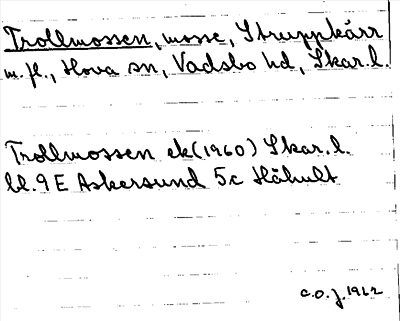 Trollmossen, mosse, Struppkärr
m.fl., Hova sn, Vadsbo hd, Skar.l.
Trollmossen ek(1960) Skar.l.
bl.9E Askersund 5c Håhult
C.O.J. 1962